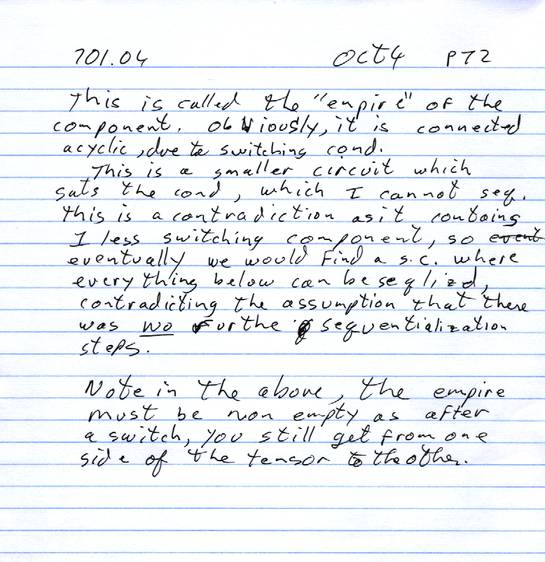 701.04 Oct 4 PT2
This is called the "empire" of the
component. Obviously, it is connected
acyclic, due to switching cond.
This is a smaller circuit which
sats the cond, which I cannot seq.
this is a contradiction as it contains
1 less switching component, so event
eventually we would find a s.c. where
everything below can be seqlized,
contradicting the assumption that there
was no furthe sequentialization
steps.
Note in the above, the empire
must be non empty as after
a switch, you still get from one
side of the tensor to the other.